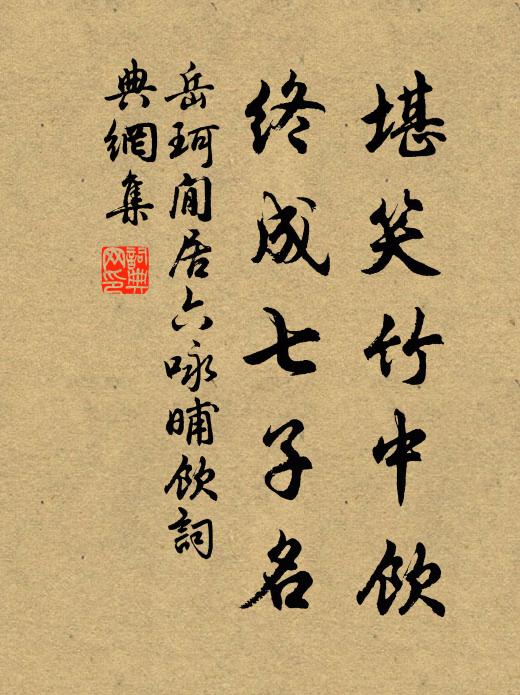 堪笑竹中飲
終成七子名
岳珂閒居六咏晡飲詞
典網集
詞典網印